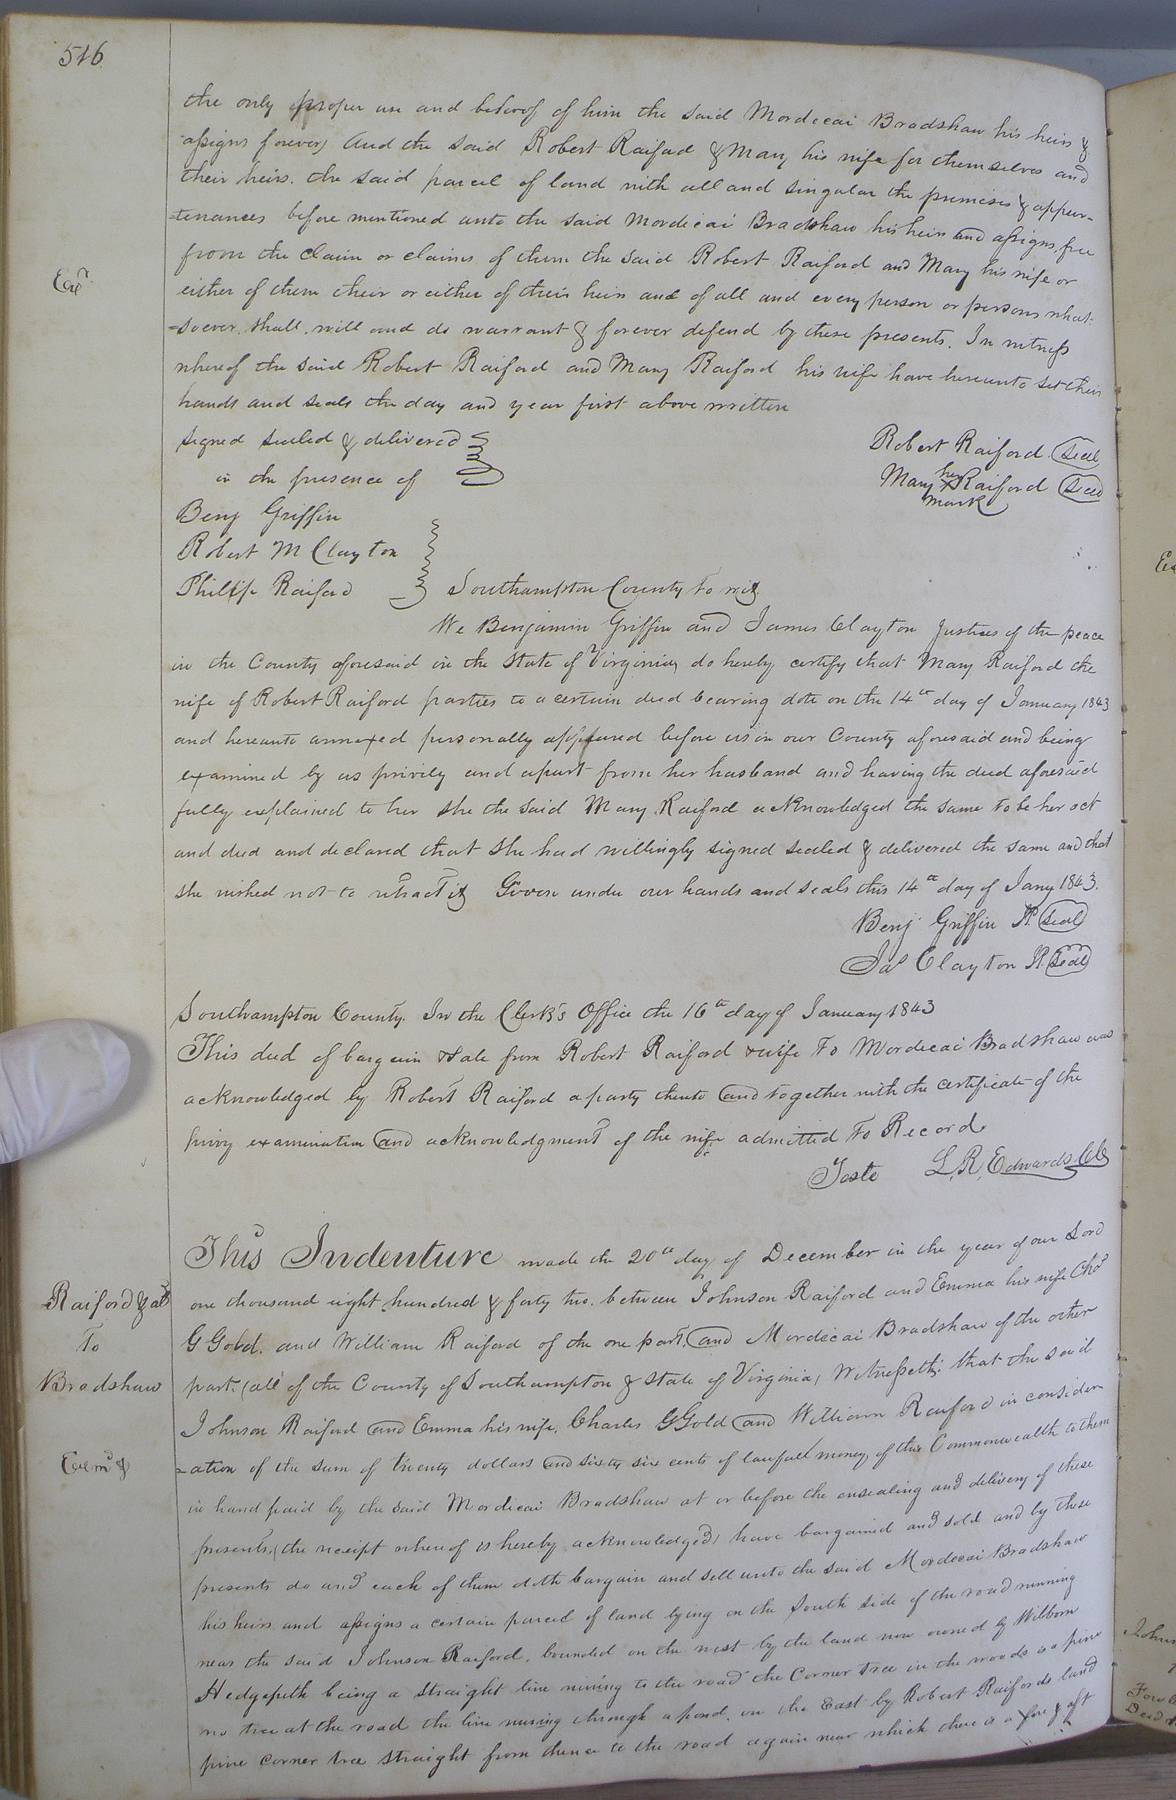 516
the only proper use and behoof of him the said Mordecai Bradshaw his heirs &
assigns forever) And the said Robert Raiford & Mary his wife for themselves and
their heirs. the said parcel of land with all and singular the premises & appur-
-tenances before mentioned unto the said Mordecai Bradshaw his heirs and assigns, free
from the claim or claims of them the said Robert Raiford and Mary his wife or
either of them their or either of their heirs and of all and every person or persons what-
-soever, shall, will and do warrant & forever defend by these presents. In witness
whereof the said Robert Raiford and Mary Raiford his wife have hereunto set their
hands and seals the day and year first above written
Signed sealed & delivered
in the presence of
Robert Raiford Seal
Mary her Raiford Seal
mark
Benj Griffin
Robert M Clayton
Philip Raiford
Southampton County to wit
We Benjamin Griffin and James Clayton Justices of the peace
in the County aforesaid in the State of Virginia, do hereby certify that Mary Raiford the
wife of Robert Raiford parties to a certain deed bearing date on the 14th day of January 1843
and hereunto annexed personally appeared before us in our County aforesaid and being
examined by us privily and apart from her husband and having the deed aforesaid
fully explained to her she the said Mary Raiford acknowledged the same to be her act
and deed and declared that she had willingly signed sealed & delivered the same and that
she wished not to retract it Given under our hands and seals this 14th day of Jany 1843.
Benj Griffin JP. Seal
Jas Clayton JP Seal
Southampton County. In the Clerk's Office the 16th day of January 1843
This deed of bargain & sale from Robert Raiford & wife to Mordecai Bradshaw was
acknowledged by Robert Raiford a party thereto and together with the certificate of the
privy examination and acknowledgment of the wife admitted to Record
Teste L. R. Edwards. Clk
Raiford & als
To
Bradshaw
This Indenture made the 20th day of December in the year of our Lord
one thousand eight hundred & forty two. between Johnson Raiford and Emma his wife Chas
G Gold. and William Raiford of the one part, and Mordecai Bradshaw of the other
part. (all of the County of Southampton & State of Virginia) Witnesseth: that the said
Johnson Raiford and Emma his wife, Charles G Gold and William Raiford in consider
-ation of the sum of twenty dollars and sixty six cents of lawfull money of this Commonwealth to them
in hand paid by the said Mordecai Bradshaw at or before the ensealing and delivery of these
presents, (the receipt whereof is hereby acknowledged) have bargained and sold and by these
presents do and each of them doth bargain and sell unto the said Mordecai Bradshaw
his heirs and assigns a certain parcel of land lying on the South side of the road running
near the said Johnson Raiford, bounded on the west by the land now owned by Wilborn
Hedgepeth being a straight line running to the road the Corner tree in the woods is a pine
no tree at the road the line running through a pond, on the East by Robert Raifords land
pine corner tree straight from thence to the road again near which there is a fore & aft